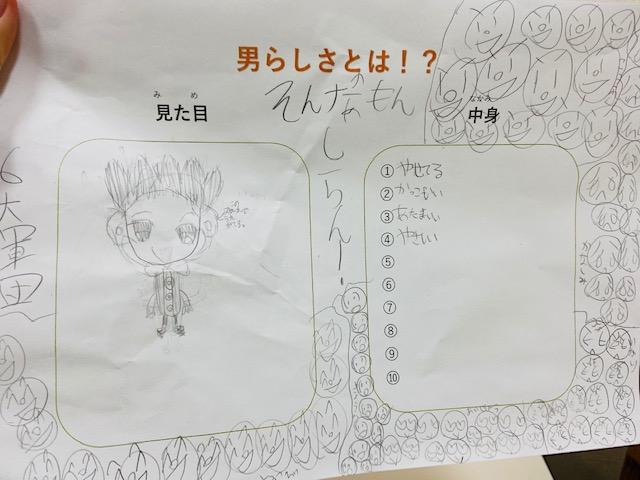 男らしさとは！？
みめ
見た目
なかみ
中身
そんなの
もん
しーらんー
① やせてる
② かっこもい
③ あたまいい
④ やさしい
⑤
⑥
⑦
⑧
⑨
⑩
大軍団